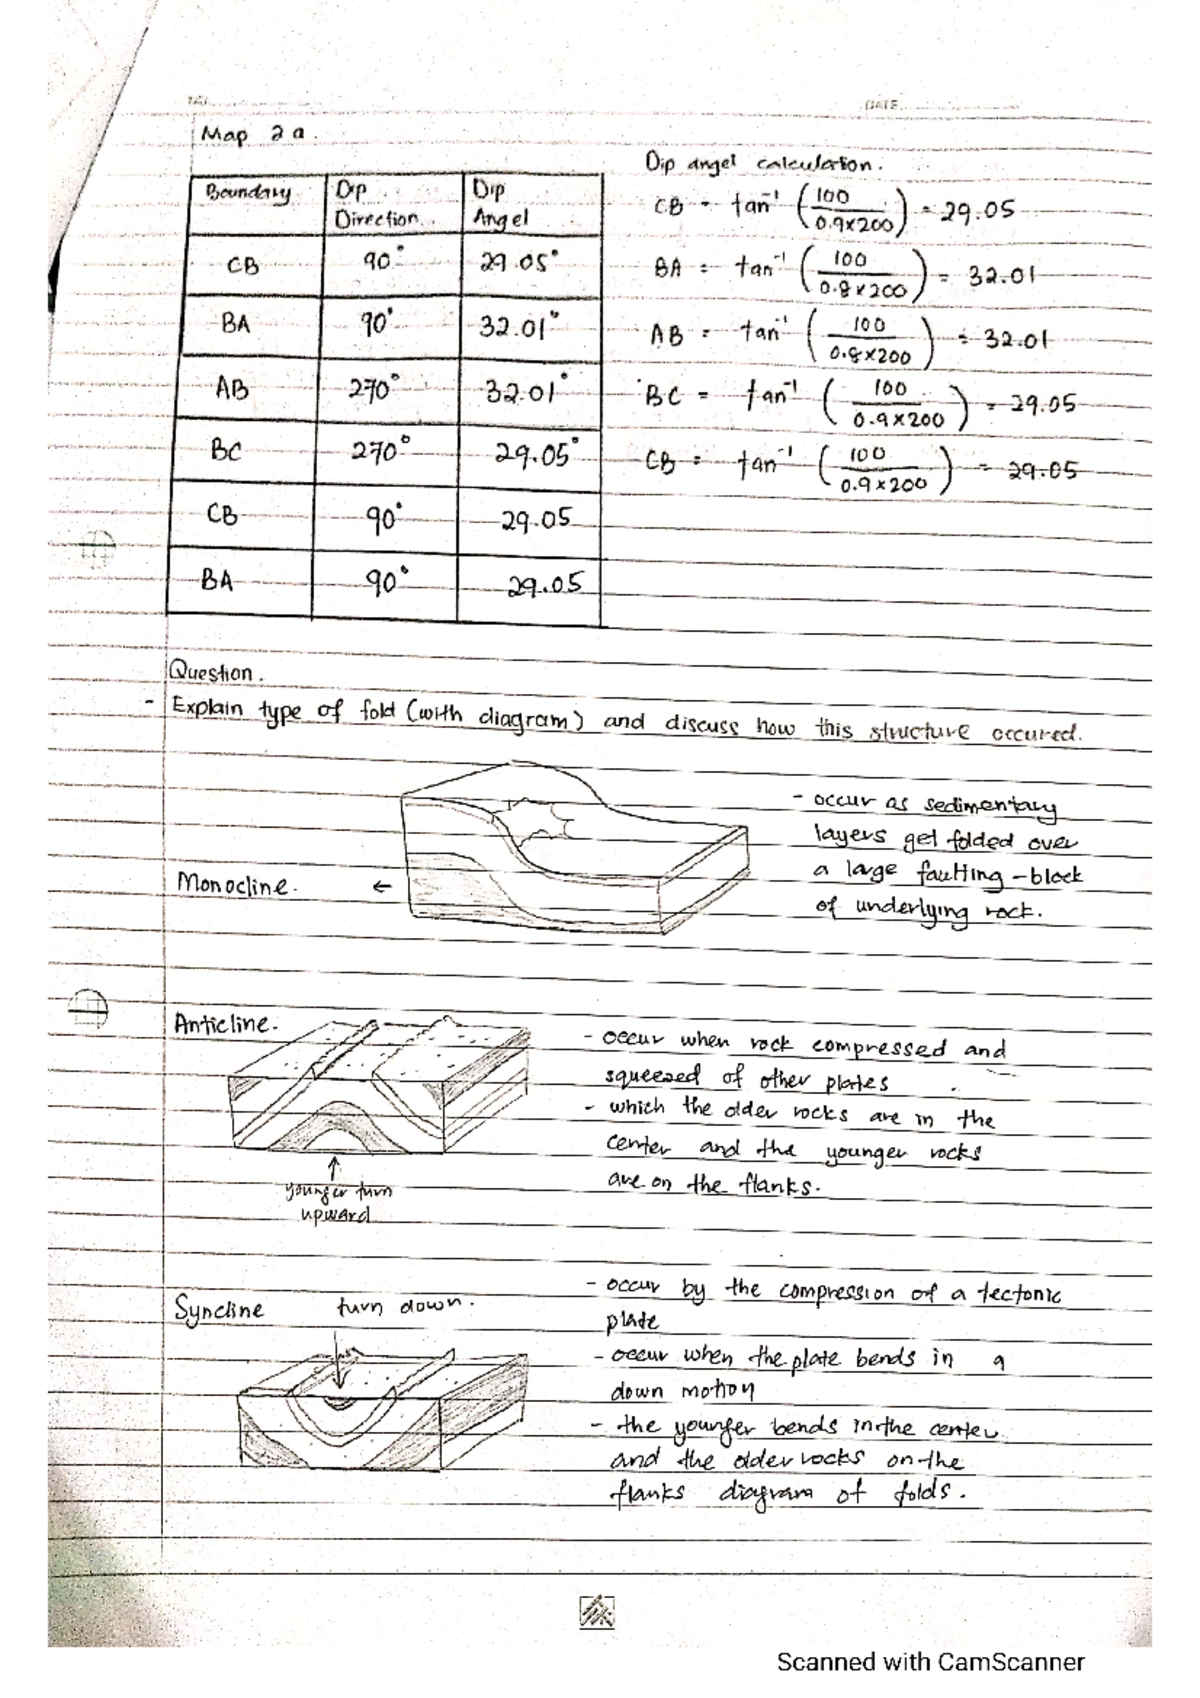 DATE
Map 2a.
Dip angel calculation.
Boundary
Dip Direction.
Dip Angel
CB 90° 29.05°
BA 90° 32.01°
AB 270° 32.01°
BC 270° 29.05°
CB 90° 29.05
BA 90° 29.05
CB = tan⁻¹ (100 / 0.9x200) = 29.05
BA = tan⁻¹ (100 / 0.8x200) = 32.01
AB = tan⁻¹ (100 / 0.8x200) = 32.01
BC = tan⁻¹ (100 / 0.9x200) = 29.05
CB = tan⁻¹ (100 / 0.9x200) = 29.05
Question.
- Explain type of fold (with diagram) and discuss how this structure occured.
Monocline. ←
- occur as sedimentary
layers get folded over
a large faulting-block
of underlying rock.
Anticline.
↑
younger turn
upward
- occur when rock compressed and
squeezed of other plates
- which the older rocks are in the
center and the younger rocks
are on the flanks.
Syncline turn down.
- occur by the compression of a tectonic
plate
- occur when the plate bends in a
down motion
- the younger bends in the center
and the older rocks on the
flanks diagram of folds.
Scanned with CamScanner